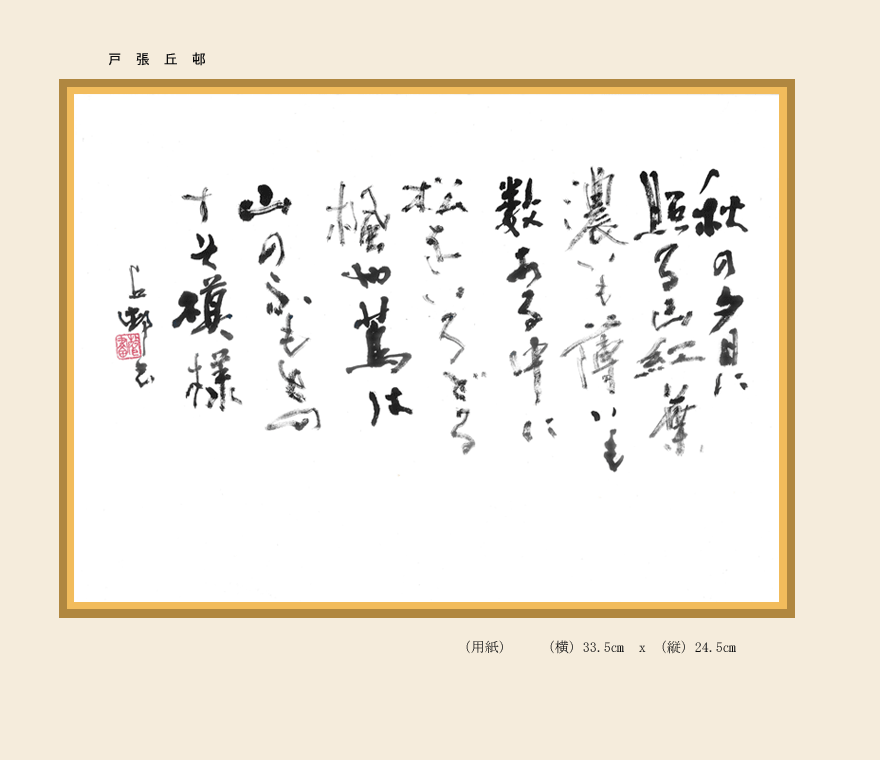 戸張丘邨
秋の夕日に
照る山紅葉
濃いも薄いも
数ある中に
松をいろどる
楓や蔦は
山のふもとの
すそ模様
丘邨书
(用紙) (横) 33.5cm x (縦) 24.5cm